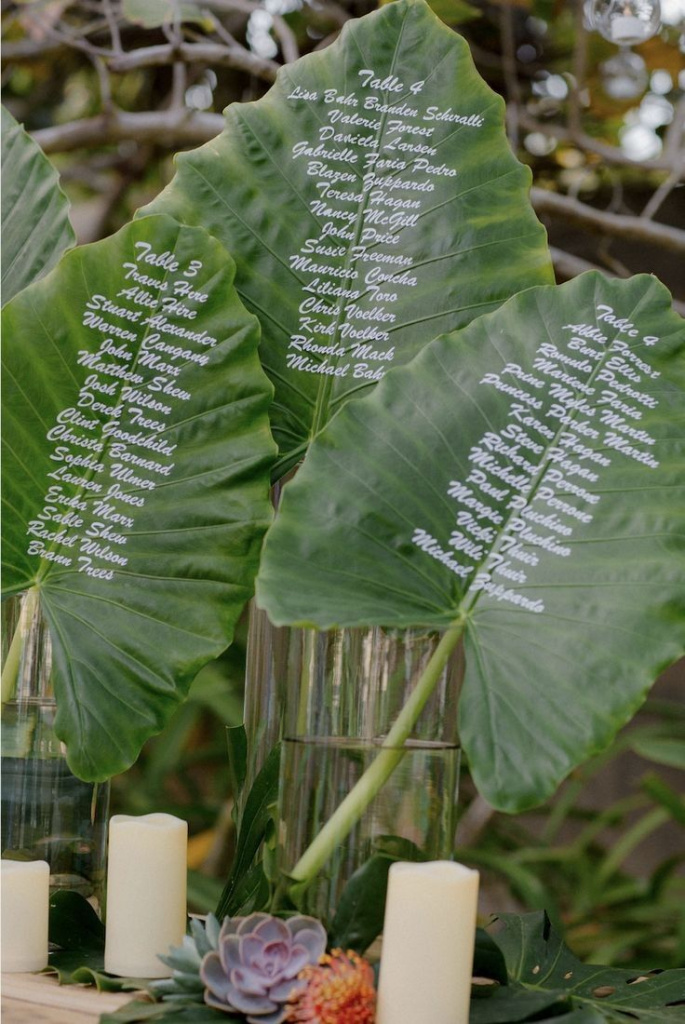 Table 3
Travis Here
Allie Here
Stuart Alexander
Warren Cangany
John Marx
Matthew Shew
Josh Wilson
Derek Trees
Clint Goodchild
Christe Barnard
Sophia Ulmer
Lauren Jones
Erika Marx
Sable Shew
Rachel Wilson
Brann Trees
Table 4
Lisa Bahr Branden Schiralli
Valerie Forest
Daniela Larsen
Gabrielle Faria Pedro
Blazen Zuppardo
Teresa Hagan
Nancy McGill
John Price
Susie Freeman
Mauricio Concha
Liliana Toro
Chris Voelker
Kirk Voelker
Rhonda Mack
Michael Bah
Table 4
Forrest
Burt Ellis
Romulo Pedrotti
Marion Faria
Miles Martin
Parker Martin
Kara Hagan
Steve Hagan
Perrone
Michelle Perrone
Paul Pluchino
Margie Pluchino
Vicki Thuir
Thuir
Michael Zuppardo